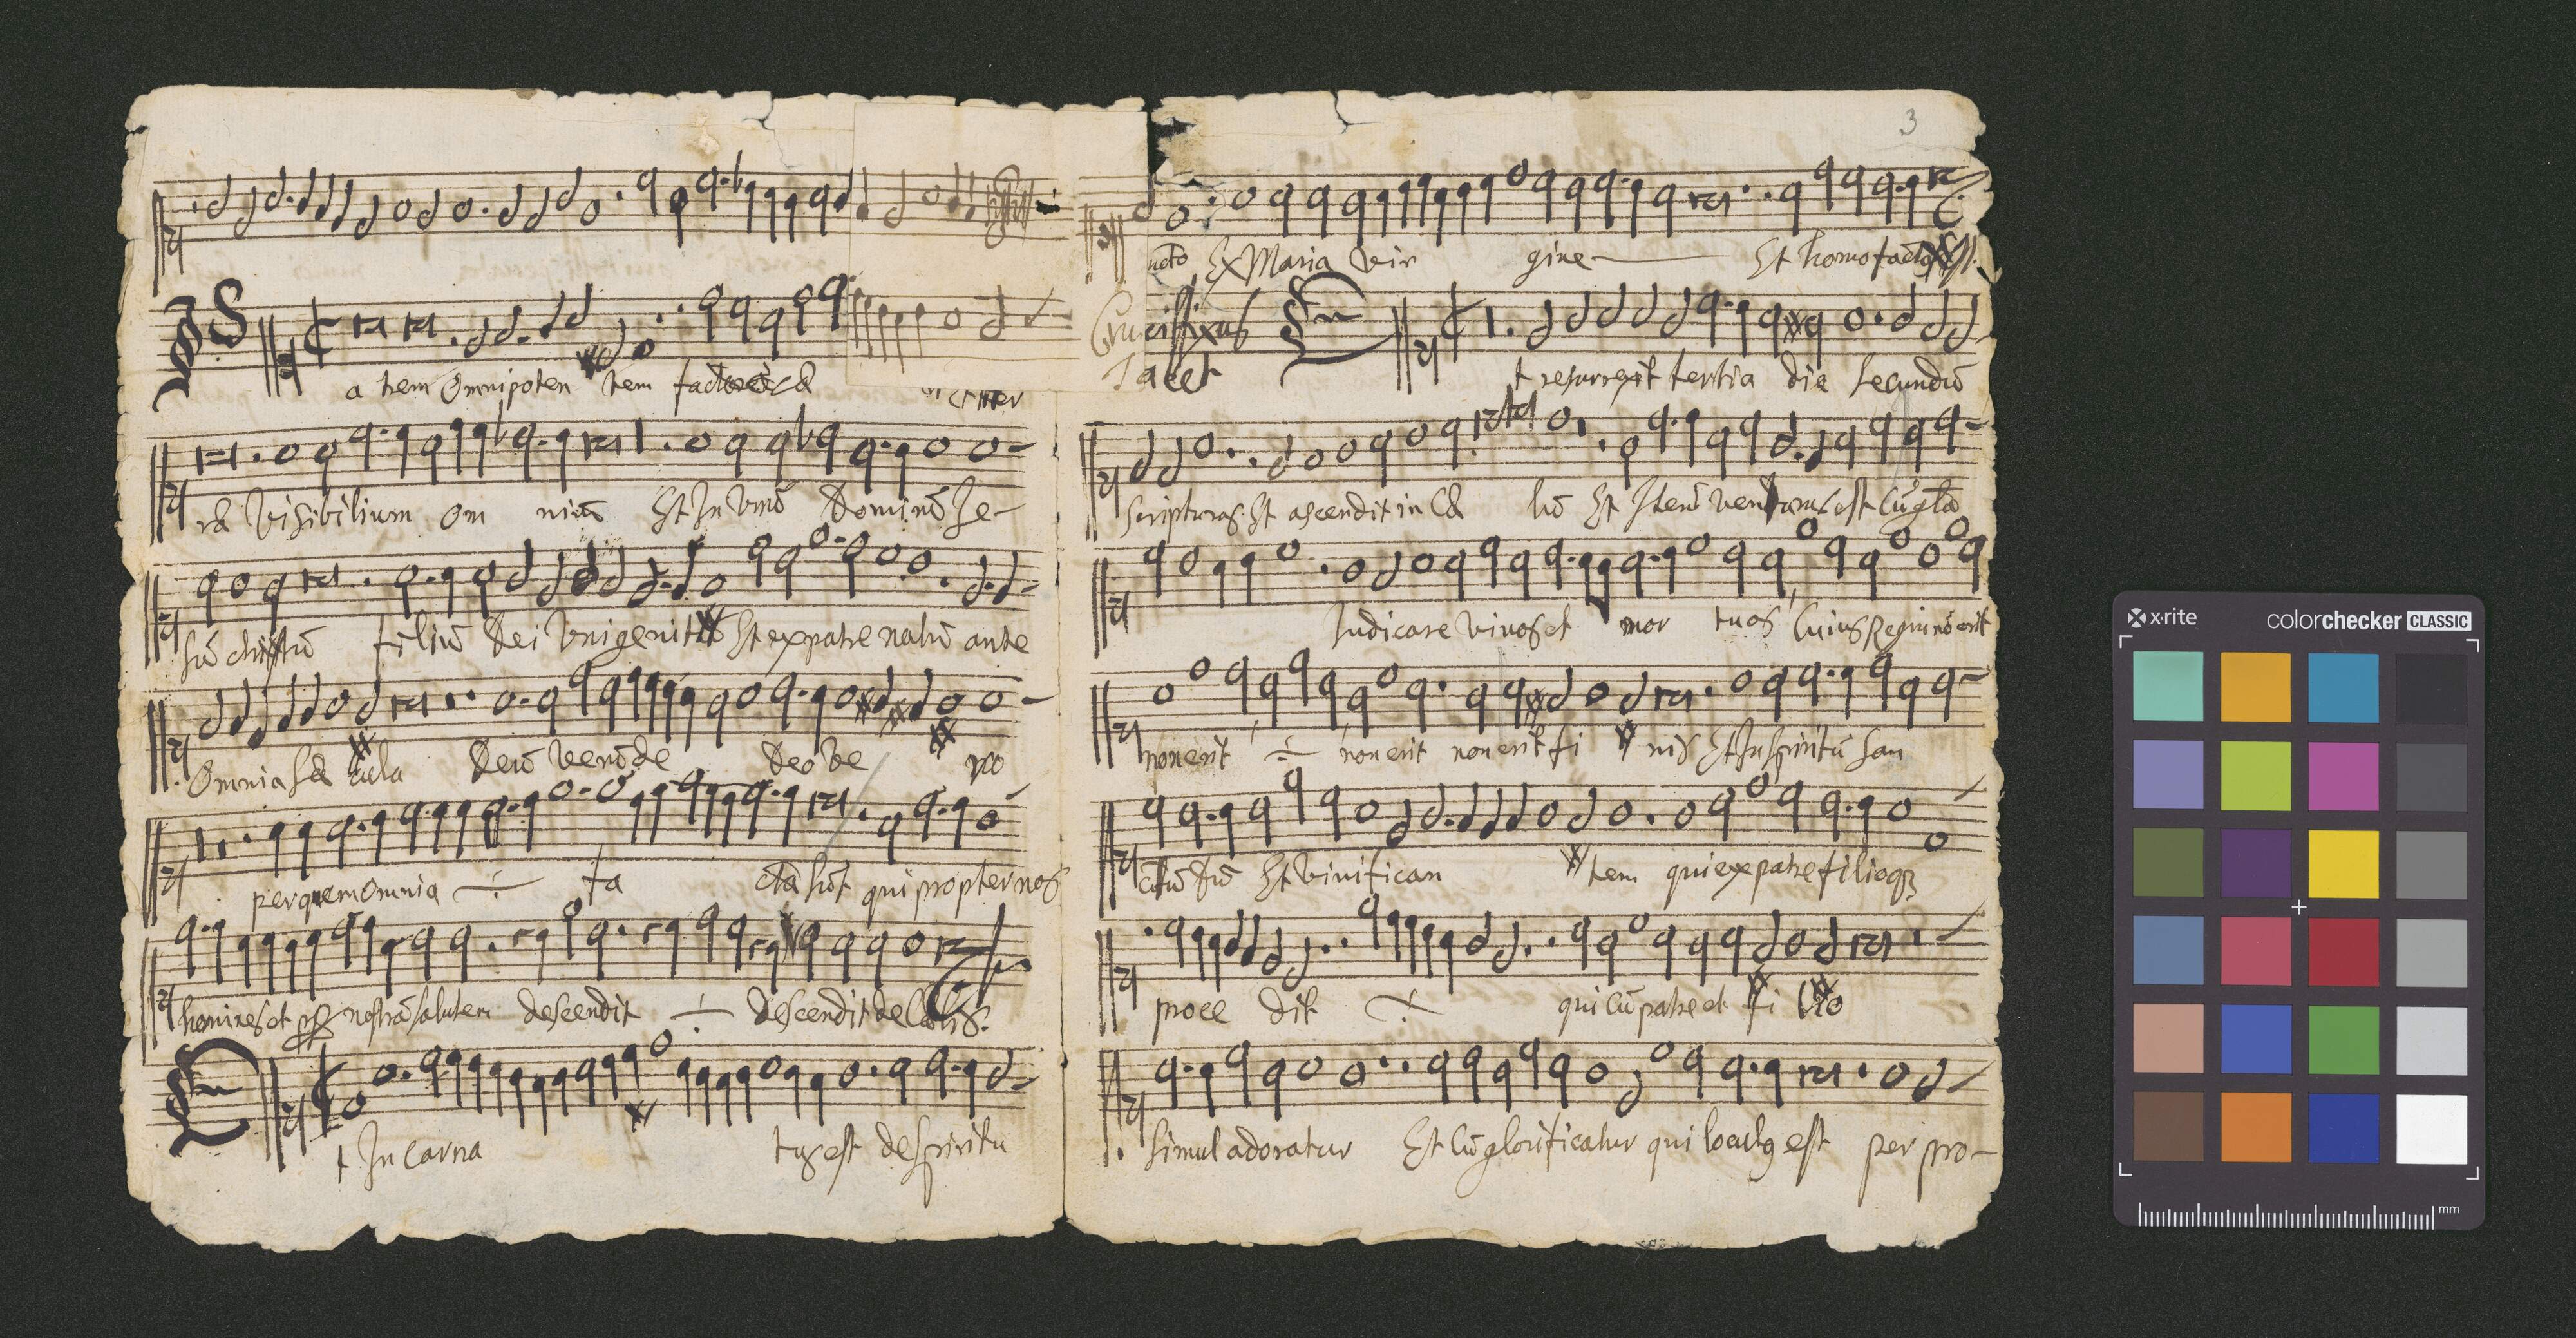 a trem Omnipoten tem factorē cæ
ræ Visibilium om niū Et In Vnū Dominū Je-
sū christū filiū Dei Vnigenitū Et ex patre natū ante
Omnia sæ cula Deū Verū de Deo Ve ro
per quem omnia ÷ fa cta sūt qui propter nos
homines et nostrā salutem descendit ÷ descendit de Cælis.
t In carna tus est de spiritu
3
ncto Ex Maria vir gine Et homo factus est.
Crucifixus
Tacet
t resurrexit tertia die Secundū
Scripturas. Et ascendit in Cæ lū Et Iterū venturus est Cū glo
Iudicare vivos et mor tuos Cuius Regni nō erit
non erit ÷ non erit non erit fi nis Et In spiritū San
ctū Et vivifican tem qui ex patre filioq3
proce dit ÷ qui cū patre et fi lio
Simul adoratur Et Cū glorificatur qui locutus est per pro-
x·rite
colorchecker CLASSIC
mm